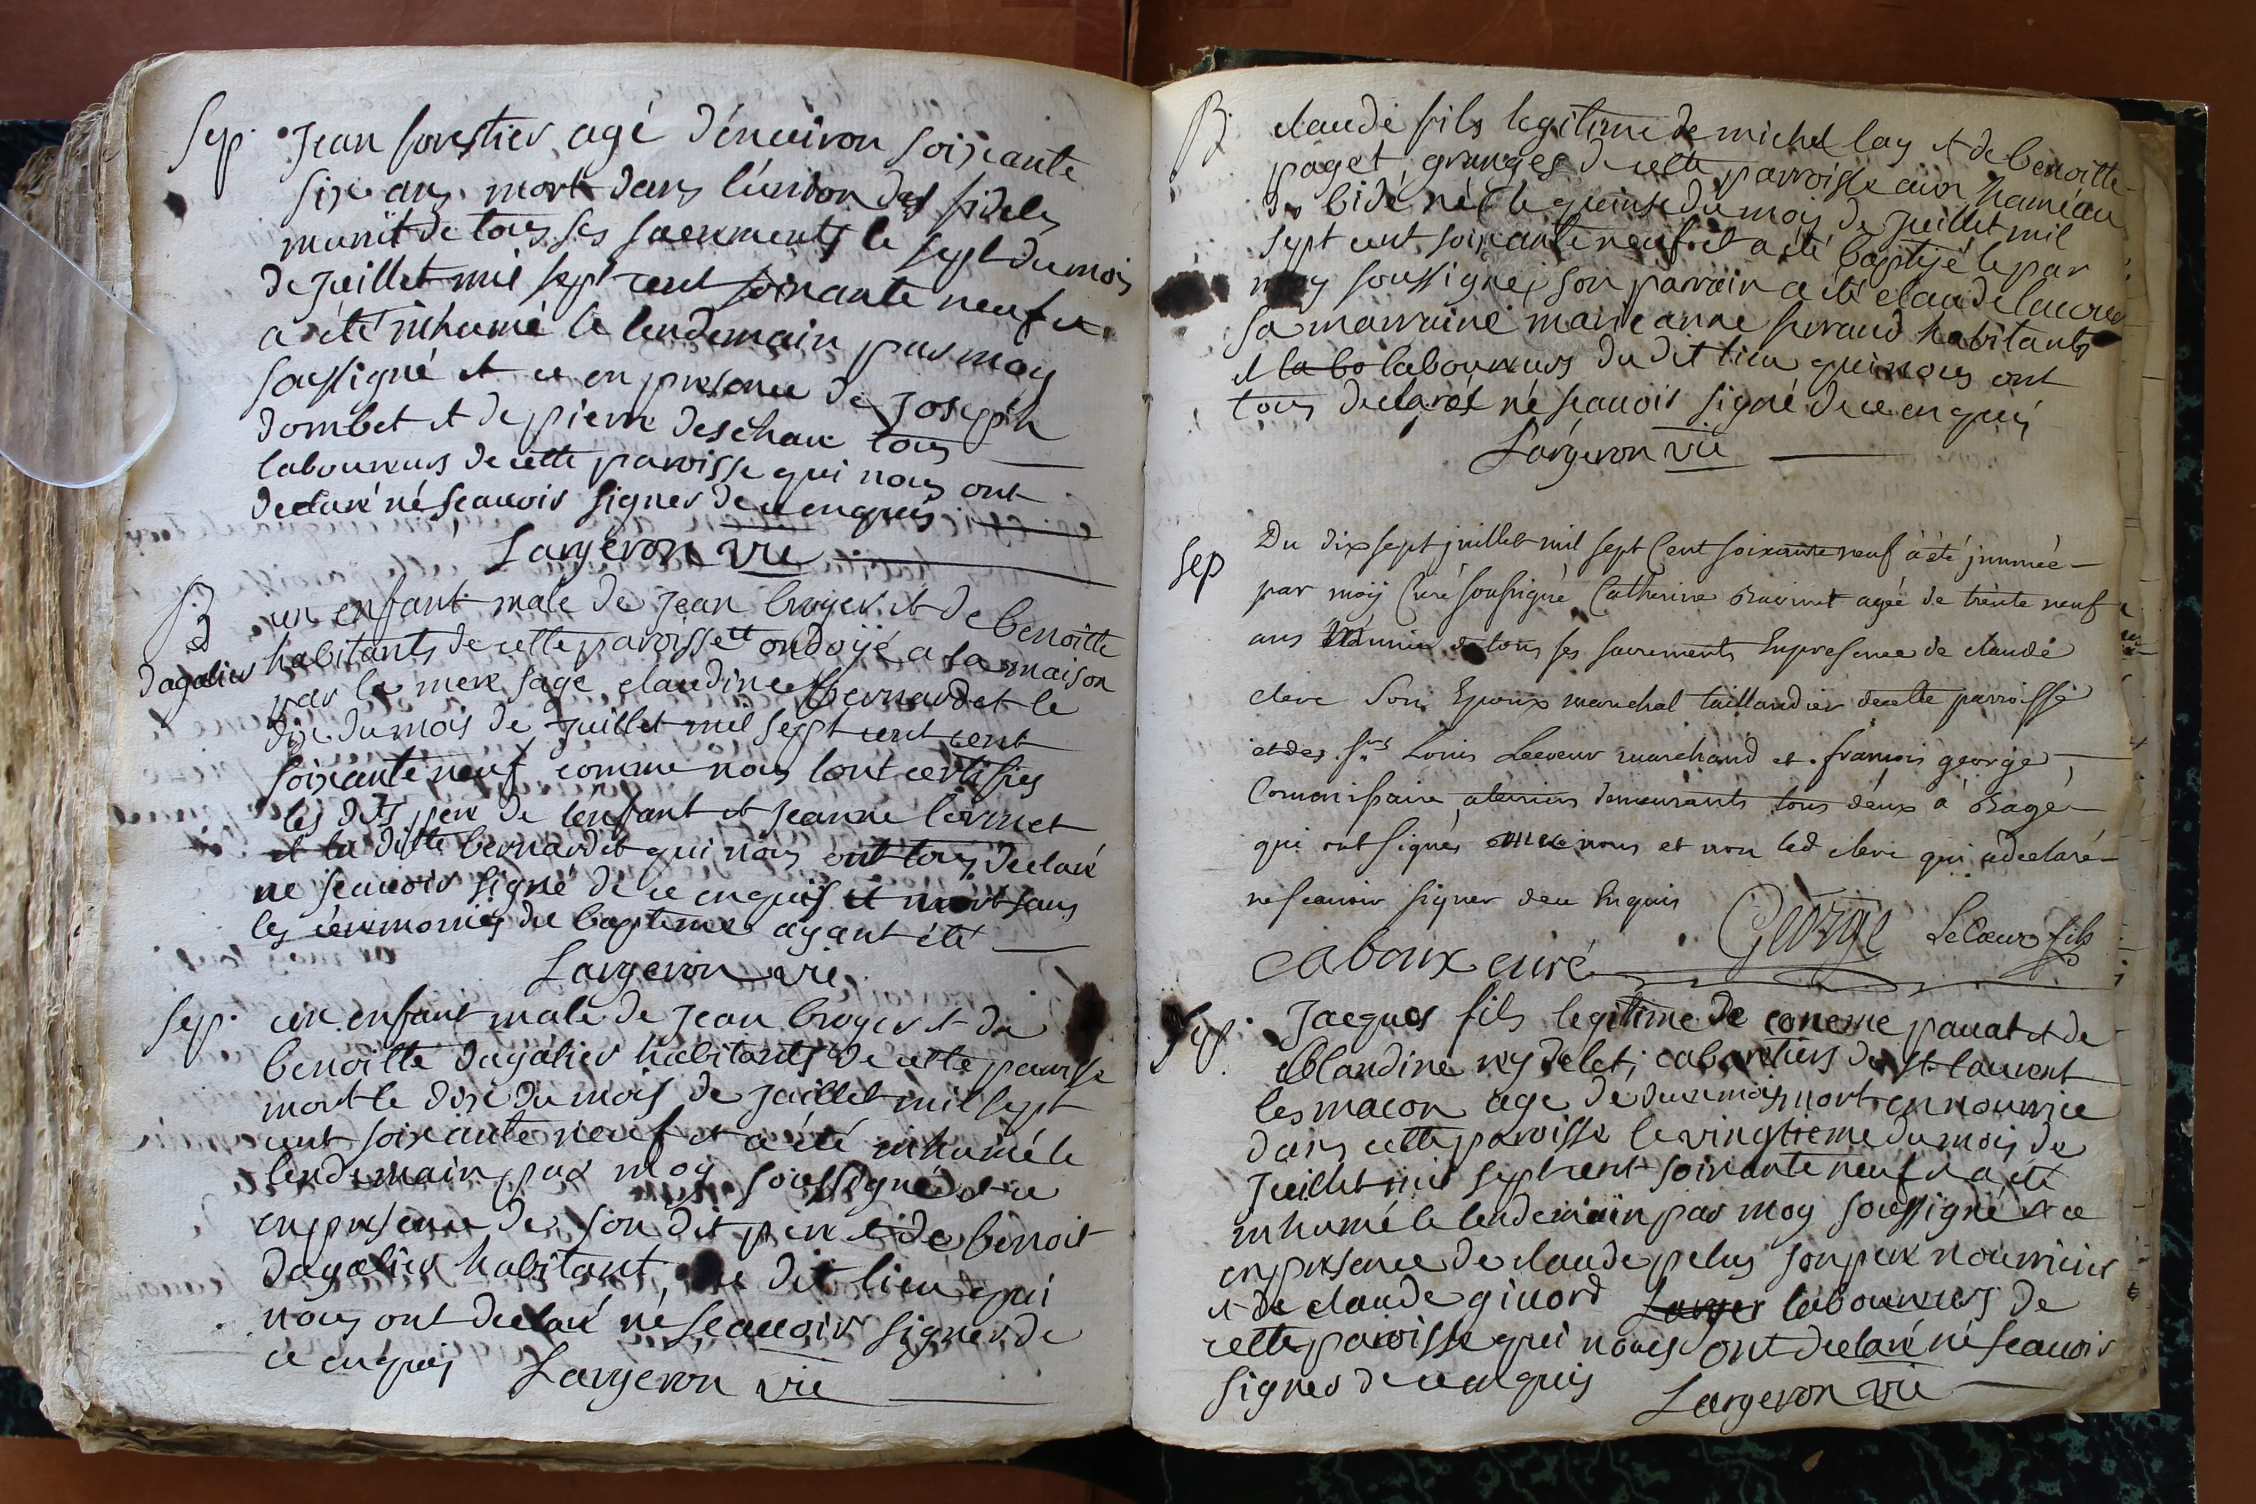 Sep. Jean forestier agé dénuiron soixante
six ans mort dans l'union des fideles
munit de tous ses sacrements le sept du mois
de juillet mil sept cent soixante neuf et
a été inhumé le lendemain par moy
soussigné et ce en presence de Joseph
dombet et de pierre deschaux tous
laboureurs de cette paroisse qui nous ont
declaré né scauoir signer de ce enquis
Largeron vic
B un enfant male de jean broyer et de benoitte
dagalier habitants de cette paroisse et ondoÿé a sa maison
par la mere sage claudine bernardet le
dix du mois de juillet mil sept cent cent
soixante neuf comme nous l'ont certifiés
les dits pere de l'enfant et jeanne
et la ditte bernardet qui nous ont tous declaré
ne scauoir signé de ce enquis et mort sans
les ceremonies du baptême ayant été
Largeron vic
Sep. un enfant male de jean broyer et de
benoitte dagalier habitants de cette paroisse
mort le dix du mois de juillet mil sept
cent soixante neuf et a été inhumé le
lendemain par moy soussigné et ce
en presence de son dit pere et de benoit
dagalier habitant du dit lieu qui
nous ont declaré né scauoir signer de
ce enquis Largeron vic
B claude fils legitime de michel lay et de benoitte
paget, granges de cette parroisse au hameau
du bidé né le quinse du mois de juillet mil
sept cent soixante neuf et a été baptisé le par
moy soussigné, son parrain a été claude
sa marraine marie anne habitants
et la bo laboureurs du dit lieu qui nous ont
tous declarés né scauoir signé de ce enquis
Largeron vic
Sep Du dix sept juillet mil sept Cent soixante neuf à été jnumée
par moÿ Curé soussigné Catherine agée de trente neuf
ans munie de tous ses sacrements En presence de claude
clerc Son Epoux marechal taillandier de cette parroisse
et des Srs Louis Lecoeur marchand et françois george
Commissaire demeurants tous deux à Bagé
qui ont signés avec nous et non led clerc qui a declaré
ne scauoir signer de ce Enquis George LeCoeur fils
Caboux curé
Sep. Jacques fils legitime de come pauat et de
Claudine rey delet, cabaretiers de st laurent
les macon age de deux mois mort en nourrice
dans cette paroisse le vingtieme du mois de
juillet mil sept cent soixante neuf et a été
inhumé le lendemain par moy soussigné et ce
en presence de claude pelus son pere nourricier
et de claude giuord laboureurs de
cette paroisse qui nous ont declaré né scauoir
signer de ce enquis Largeron vic